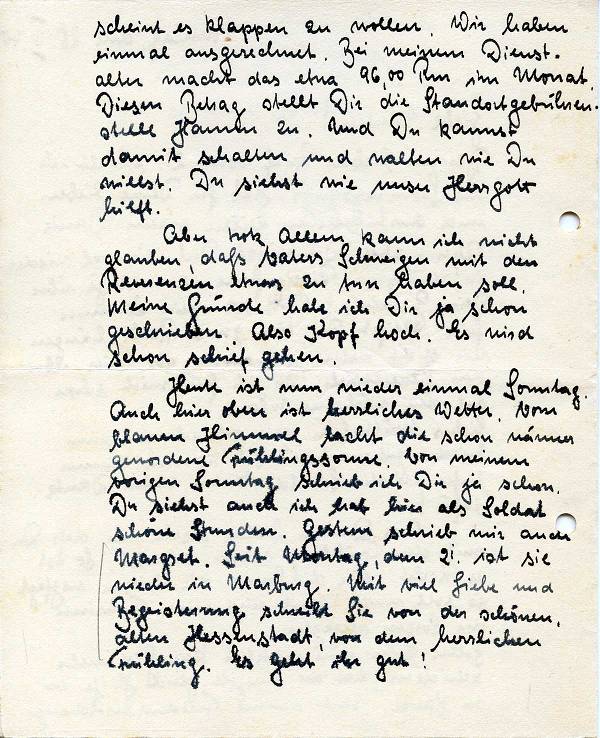 scheint es klappen zu wollen. Wir haben
einmal ausgerechnet. Bei meinem Dienst-
alter macht das etwa 96,00 Rm im Monat.
Diesen Betrag stellt Dir die Standortgebührnis-
stelle Hamm zu. Und Du kannst
damit schalten und walten wie Du
willst. Du siehst wie unser Herrgott
hilft.
Aber trotz Allem kann ich nicht
glauben, daß Vaters Schweigen mit den
Reverenzen etwas zu tun haben soll.
Meine Gründe habe ich Dir ja schon
geschrieben. Also Kopf hoch. Es wird
schon schief gehen.
Heute ist nun wieder einmal Sonntag.
Auch hier oben ist herrliches Wetter. Vom
blauen Himmel lacht die schon wärmer
gewordene Frühlingssonne. Von meinem
vorigen Sonntag schrieb ich Dir ja schon.
Du siehst auch ich hab hier als Soldat
schöne Stunden. Gestern schrieb mir auch
Margret. Seit Montag, dem 21. ist sie
wieder in Marburg. Mit viel Liebe und
Begeisterung schreibt Sie von der schönen,
alten Hessenstadt, von dem herrlichen
Frühling. Es geht ihr gut!